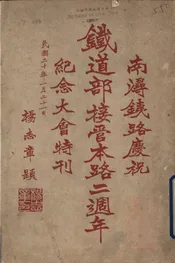 南潯鐵路慶祝
鐵道部接管本路二週年
紀念大會特刊
民國二十年一月二十一日
楊志章題